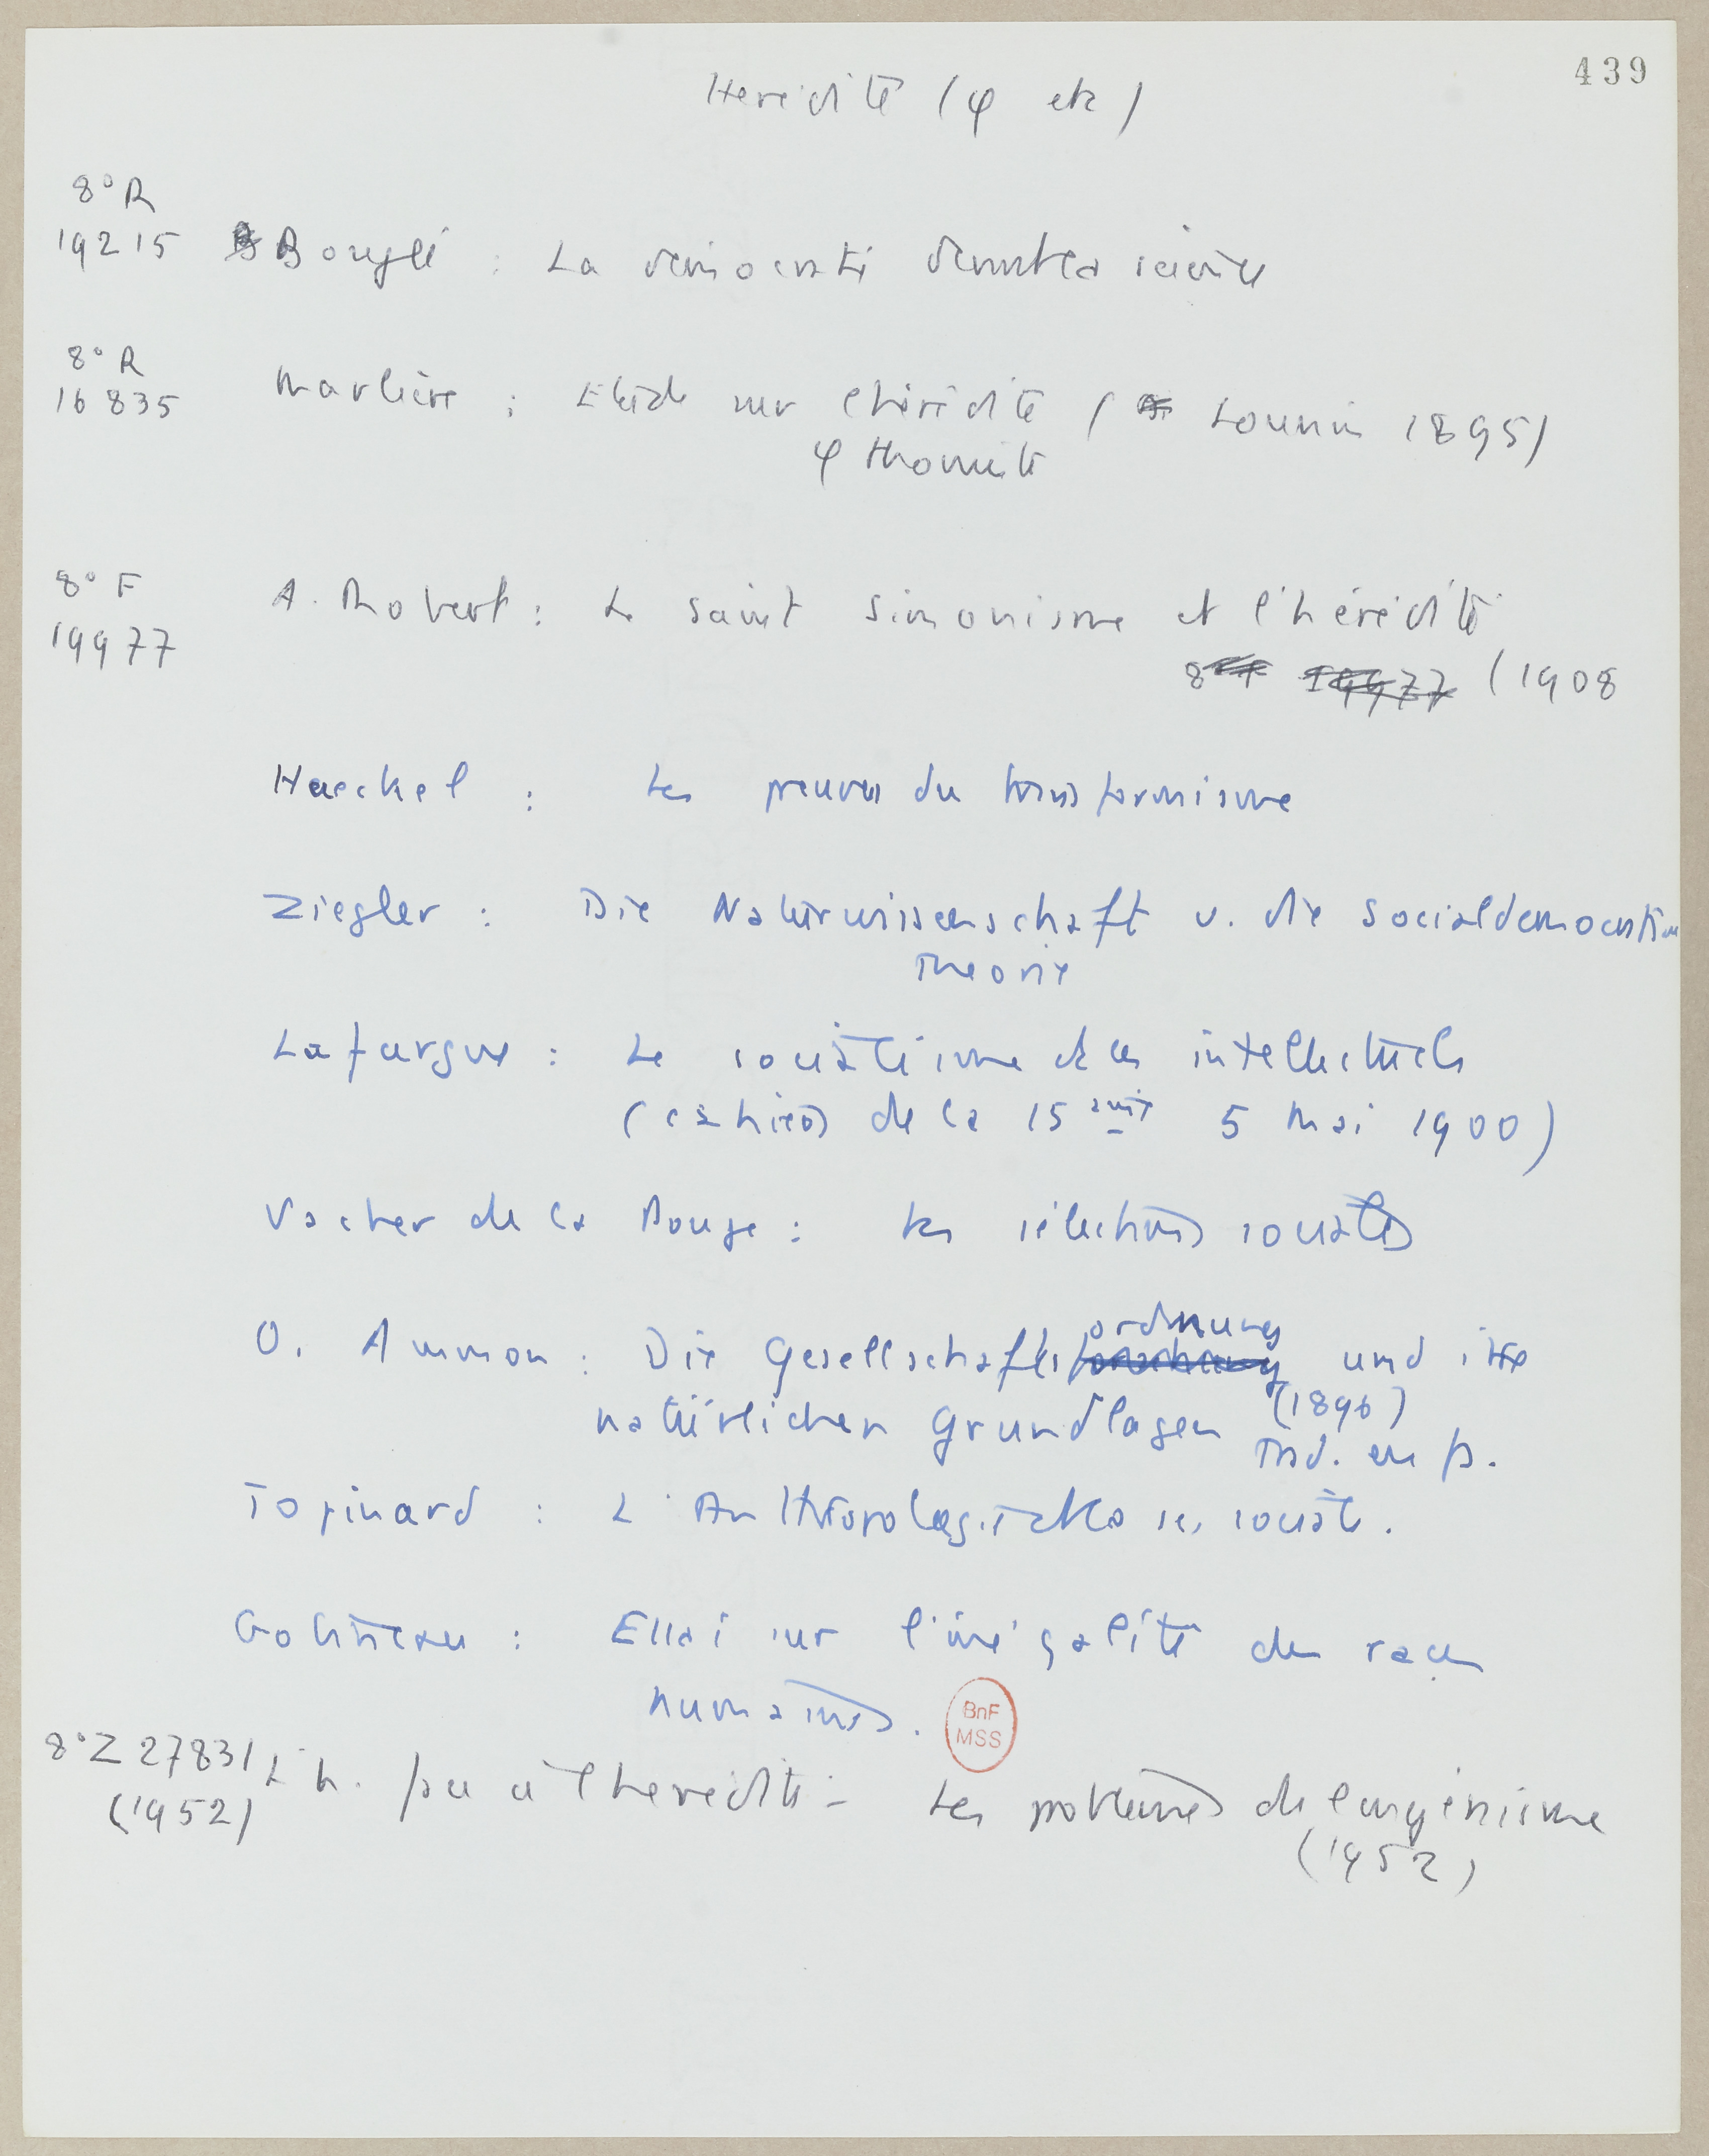 439
Hérédité (φ etc)
8° R
19215 Bouglé : La démocratie devant la science
8° R
16835 Marlière : Etude sur l'hérédité ( Louvain 1895)
φ thomiste
8° F
19977 A. Robert : Le saint simonisme et l'hérédité
8° F 19977 (1908
Haeckel : Les preuves du transformisme
Ziegler : Die Naturwissenschaft u. die socialdemocratische
Theorie
Lafargue : Le socialisme et les intellectuels
(cahiers de la 15aine 5 Mai 1900)
Vacher de la Pouge : Les sélections sociales
O. Ammon : Die Gesellschaftsordnung und ihre
natürlichen Grundlagen (1896)
Trad. en fr.
Topinard : L'Anthropologie et la sc. sociale.
Gobineau : Essai sur l'inégalité des races
humaines.
BnF
MSS
8° Z 27831 L'h. face à l'hérédité - Les problèmes de l'eugénisme
(1952) (1952)